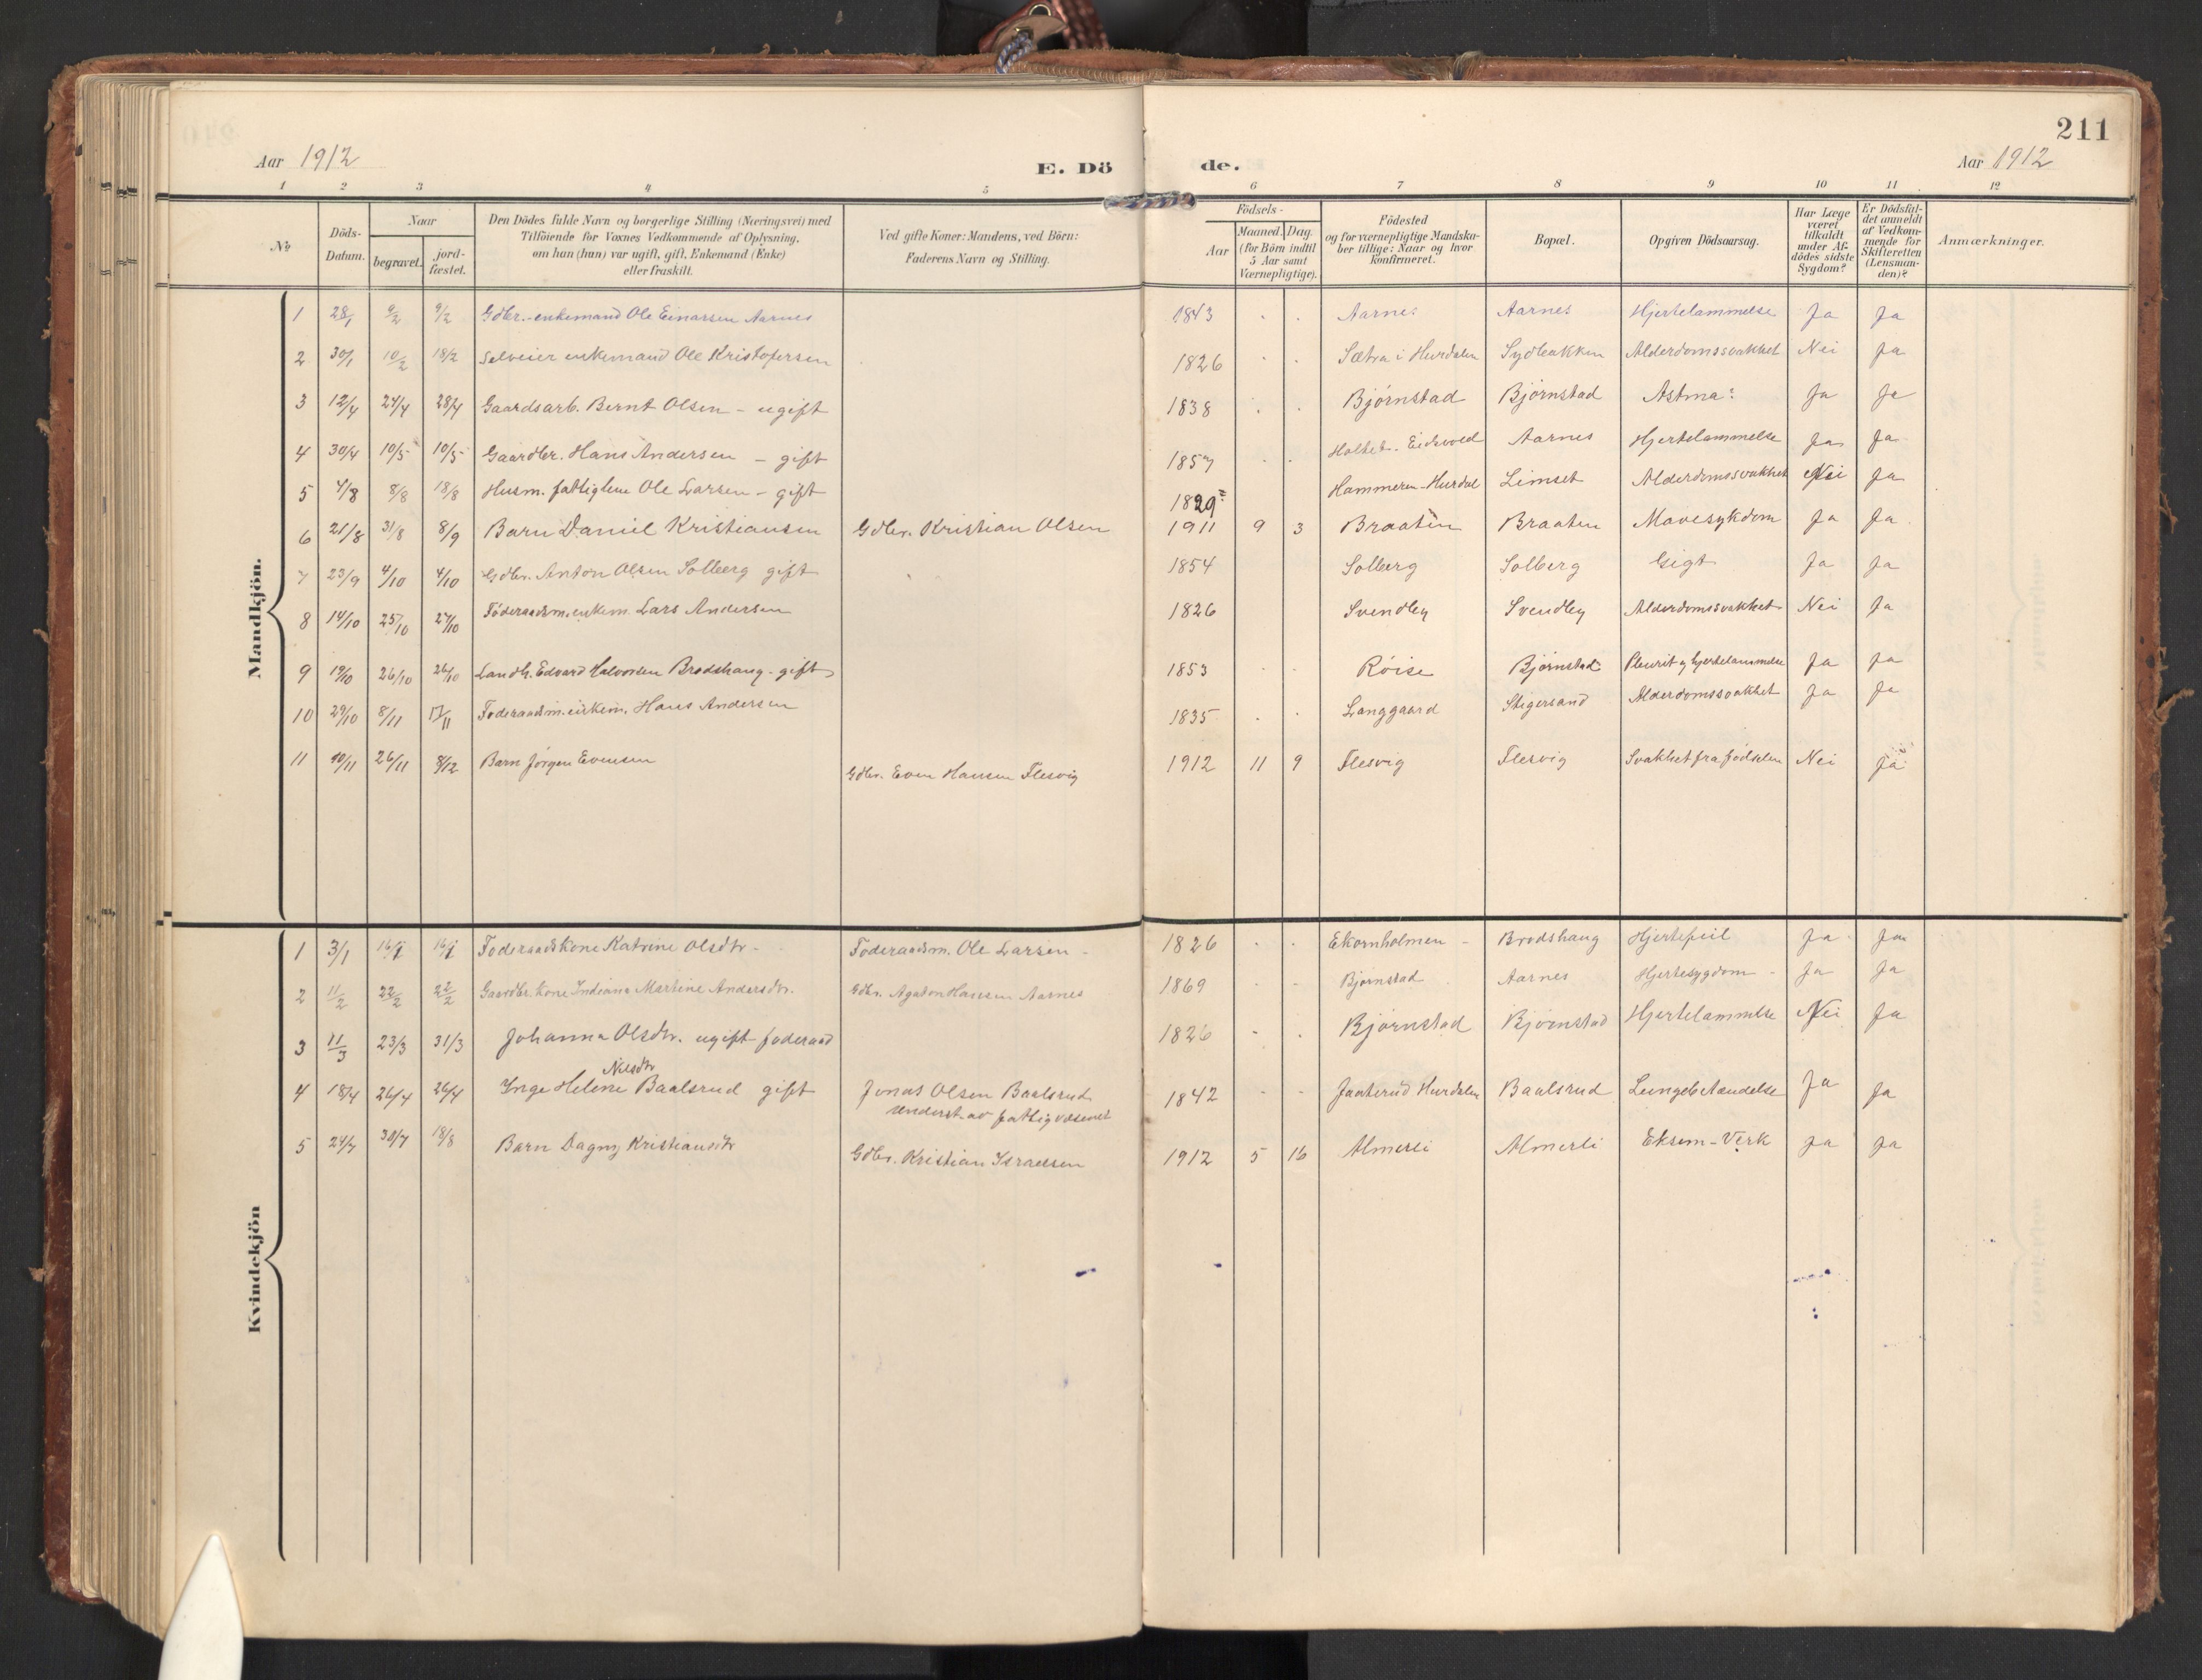 211
Aar 1912 E. Dö de. Aar 1912
1 2 3 4 5 6 7 8 9 10 11 12
No
Döds-Datum.
Naar
begravet.
jord-fæstet.
Den Dödes fulde Navn og borgerlige Stilling (Næringsvei) med
Tilföiende for Voxnes Vedkommende af Oplysning.
om han (hun) var ugift, gift, Enkemand (Enke)
eller fraskilt.
Ved gifte Koner: Mandens, ved Börn:
Faderens Navn og Stilling.
Födsels-
Aar
Maaned. Dag.
(for Börn indtil
5 Aar samt
Værnepligtige).
Födested
og for værnepligtige Mandska-
ber tillige: Naar og hvor
konfirmeret.
Bopæl.
Opgiven Dödsaarsag.
Har Læge
været
tilkaldt
under Af-
dödes sidste
Sygdom?
Er Dödsfal-
det anmeldt
af Vedkom-
mende for
Skifteretten
(Lensman-
den)?
Anmærkninger.
Mandkjön.
1 28/1 9/2 9/2 Gdbr.-enkemand Ole Einarsen Aarnes 1843 Aarnes Aarnes Hjertelammelse Ja Ja
2 30/1 10/2 18/2 Selveier enkemand Ole Kristofersen 1826 Sætra i Hurdalen Sydbakken Alderdomssvakhet Nei Ja
3 12/4 24/4 28/4 Gaardsarb. Bernt Olsen - ugift 1838 Bjørnstad Bjørnstad Astma: Ja Ja
4 30/4 10/5 10/5 Gaardbr. Hans Andersen - gift 1857 Holtet. Eidsvold Aarnes Hjertelammelse Ja Ja
5 4/8 8/8 18/8 Husm. fattiglem Ole Larsen - gift 1829 Hammeren - Hurdal Limset Alderdomssvakhet Nei Ja
6 21/8 31/8 8/9 Barn Daniel Kristiansen Gdbr. Kristian Olsen 1911 9 3 Braaten Braaten Mavesykdom Ja Ja
7 23/9 4/10 4/10 Gdbr. Anton Olsen Solberg gift 1854 Solberg Solberg Gigt Ja Ja
8 14/10 25/10 27/10 Föderaadsm. enkem. Lars Andersen 1826 Svendby Svendby Alderdomssvakhet Nei Ja
9 19/10 26/10 26/10 Landh. Edvard Halvorsen Brodshaug - gift 1853 Röise Bjørnstad Pleurit og hjertelammelse Ja Ja
10 29/10 8/11 17/11 Föderaadsm. enkem. Hans Andersen 1835 Langgaard Stigersand Alderdomssvakhet Ja Ja
11 10/11 26/11 8/12 Barn Jörgen Evensen Gdbr. Even Hansen Flesvig 1912 11 9 Flesvig Flesvig Svakhet fra födselen Nei Ja
Kvindekjön
1 3/1 16/1 16/1 Föderaadskone Katrine Olsdtr - Föderaadsm. Ole Larsen - 1826 Ekornholmen - Brodshaug Hjertefeil Ja Ja
2 11/2 22/2 22/2 Gaardbr. kone Indiana Martine Andersdtr. Gdbr. Agaton Hansen Aarnes 1869 Bjørnstad Aarnes Hjertesygdom - Ja Ja
3 11/3 23/3 31/3 Johanna Olsdtr. ugift föderaad 1826 Bjørnstad Bjørnstad Hjertelammelse Nei Ja
Nilsdtr
4 18/4 26/4 26/4 Inge Helene Baalsrud gift Jonas Olsen Baalsrud 1842 Jaaterud Hurdalen Baalsrud Lungebetændelse Ja Ja
underst. av fattigvæsenet
5 24/7 30/7 18/8 Barn Dagny Kristiansdtr Gdbr. Kristian Israelsen 1912 5 16 Almerli Almerli Eksem - Verk Ja Ja